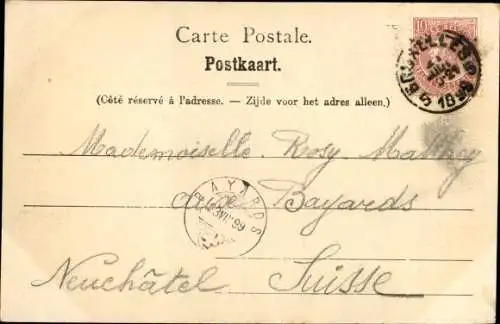 Carte Postale.
Postkaart.
(Côté réservé à l'adresse. — Zijde voor het adres alleen.)
10
BRUXELLES 5
1899
Mademoiselle Rosy
aux Bayards
BAYARDS
VII 99
Neuchâtel Suisse